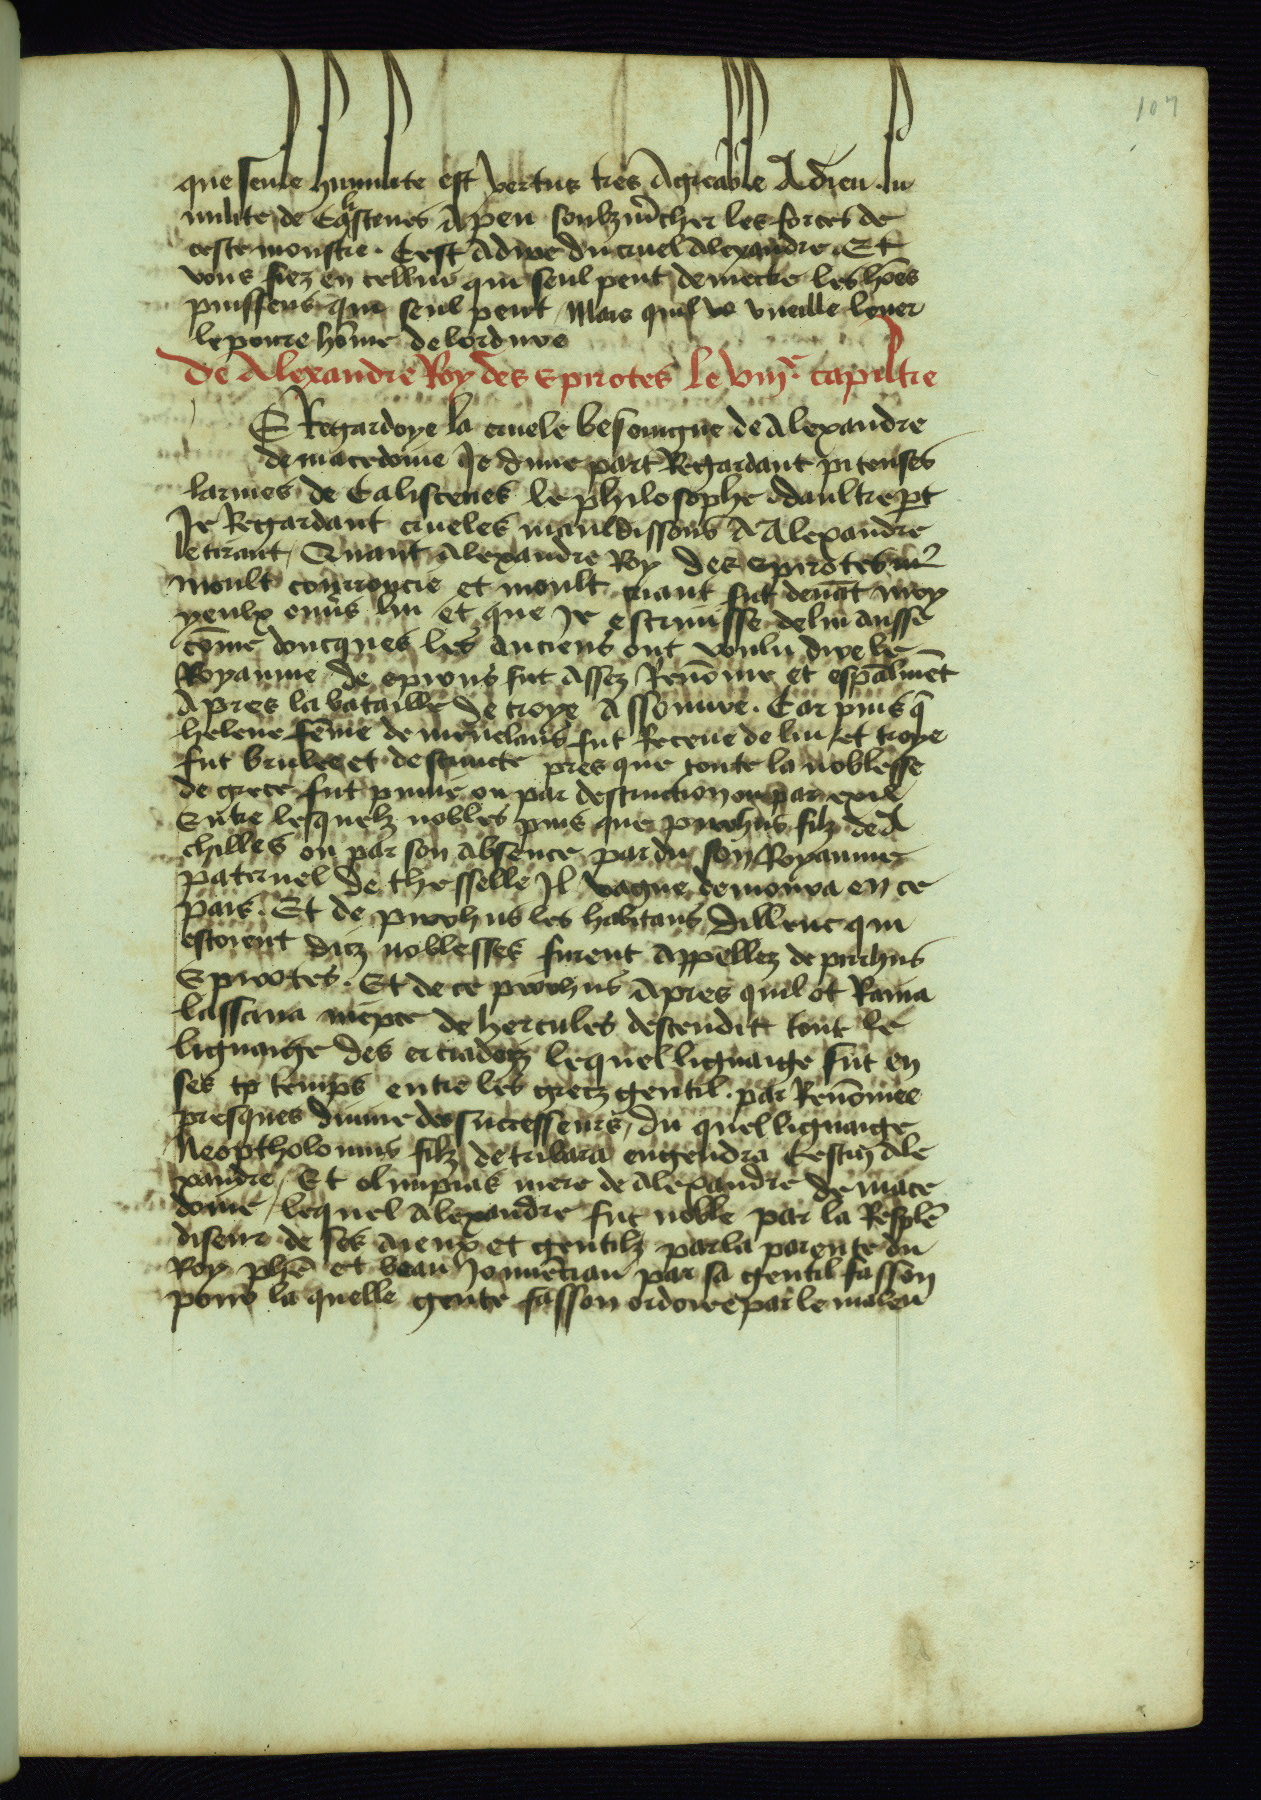 107
que seule humilite est vertus tres Agreable A dieu lu
milite de Calistenes A peu soubzmͬcher les forces de
ceste monstre. Cest A dire du cruel Alexandre. Et
vous fiez en cellui qui seul peut demectre les hões
puissens qui seul peut, Mais quil vo vueille lever
le poure hõme de lordure
De Alexandre Roy des Epirotes le viiiͤ capiltre
E Regardoye la cruele besoingne de Alexandre
de macedoine Je dune part Regardant piteuses
larmes de Caliscenes le philosophe daultre ꝑt
Je Regardant crueles mauldissons A Alexandre
le tirant, Quant Alexandre Roy des epirotes
moult courroucie et moult criant fut devãt moy
yeulx envs lui et que Je escrivisse de lui aussi
cõme doucques les anciens ont voulu dire le
Royaume de epirus fut Assez Renõme et espãlmẽt
Apres la bataille de troye Assouuie. Car puis q̃
helene fẽme de menelaus fut Receue de lui et troye
fut brulee et destructe pres que toute la noblesse
de grece fut punie ou par destruction ou par exil
Entre lesquelz nobles puis que pirrhus filz de A
chilles ou par son absence pardu son Royaume
paternel de thesselle Il vague demoura en ce
pais. Et de pirrhus les habitans dillenc qui
estoient dicz noblesses furent Appellez de pirrhus
Epirotes. Et de ce pirrhus Apres quil ot Ravia
lassana niepce de hercules descendit tout le
lignaige des eciadetz lequel lignaige fut en
ses tp temps entre les grecz gentil. par Renõmee
presques divine des successeurs, du quel lignaige
Neoptholomus filz de tribara engendra cestuy Ale
xandre, Et olimpias mere de Alexandre de mace
doine, lequel Alexandre fut noble par la Resplẽ
diseur de ses Aieux et gentilz par la parente du
Roy phẽ et beau Jouuẽceau par sa gentil fasson
pour la quelle gente fasson ordoiee par le maleu